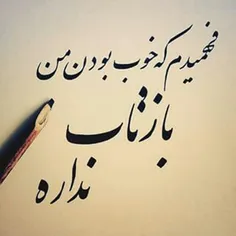 فهمیدم که خوب بودن من
بازتاب
نداره